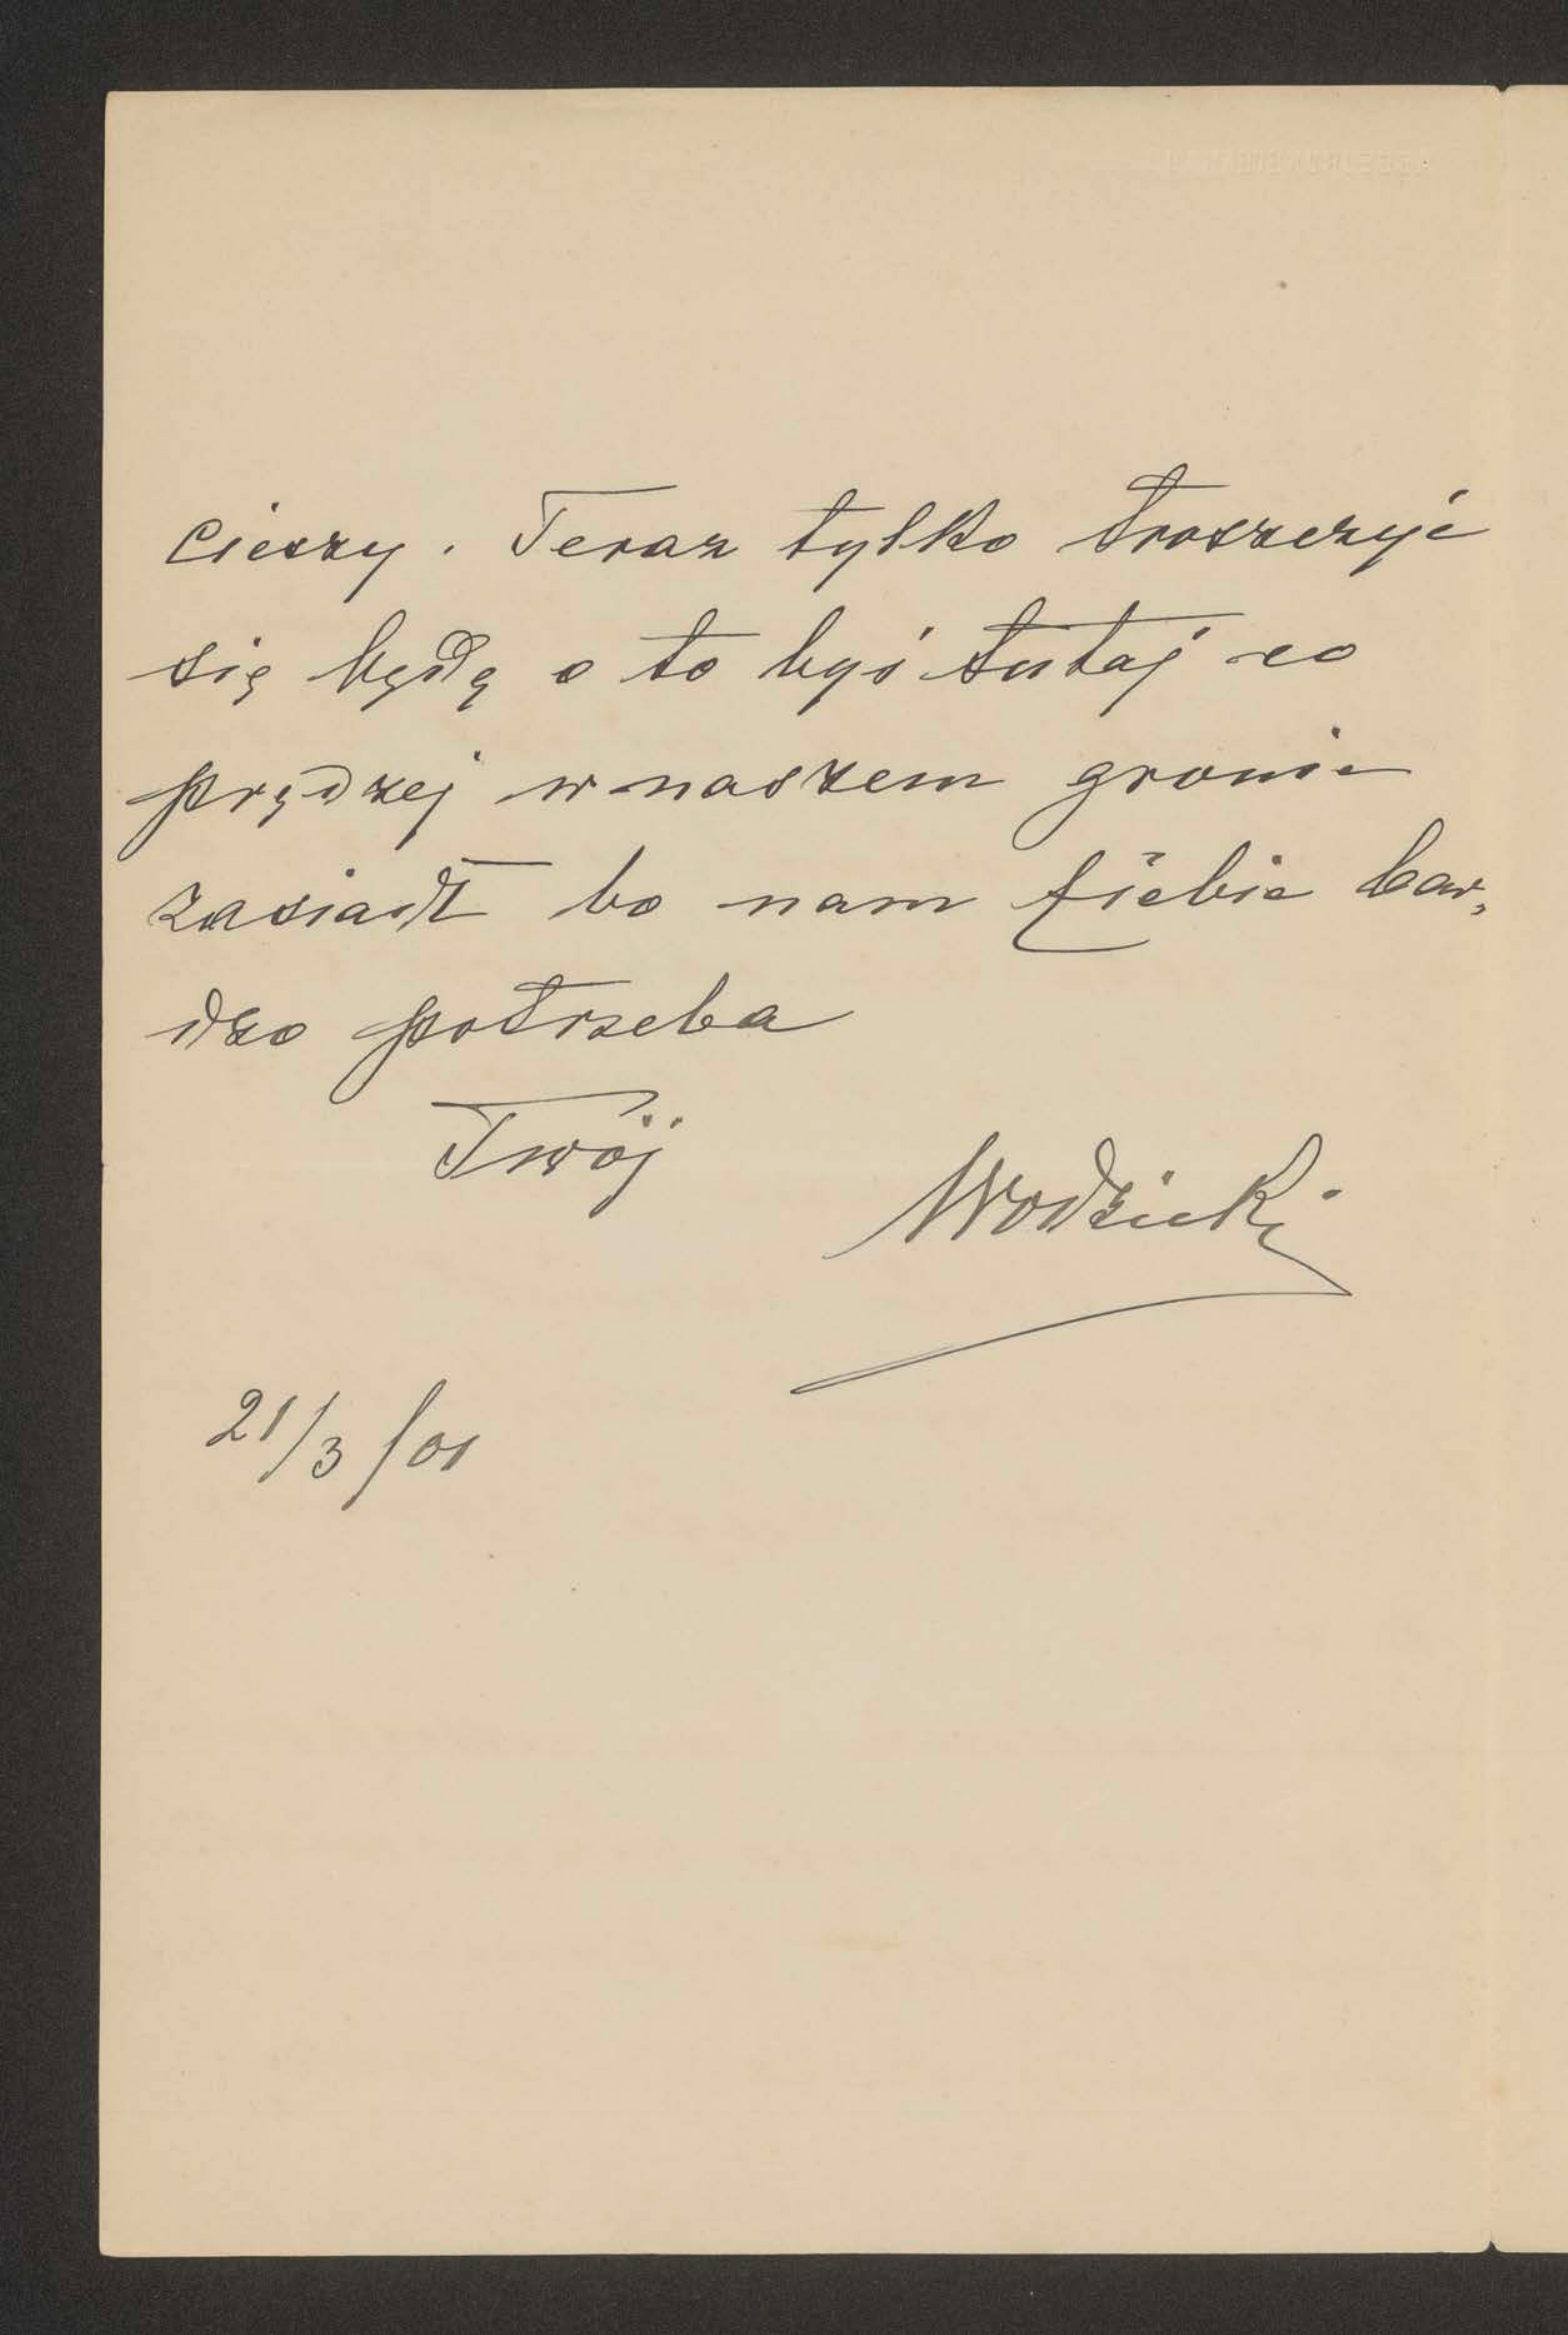 cieszy. Teraz tylko troszczyć
się będę o to byś tutaj co
prędzej w naszem gronie
zasiadł bo nam Ciebie bar„
dzo potrzeba
Twój
Wodzicki
21/3/01